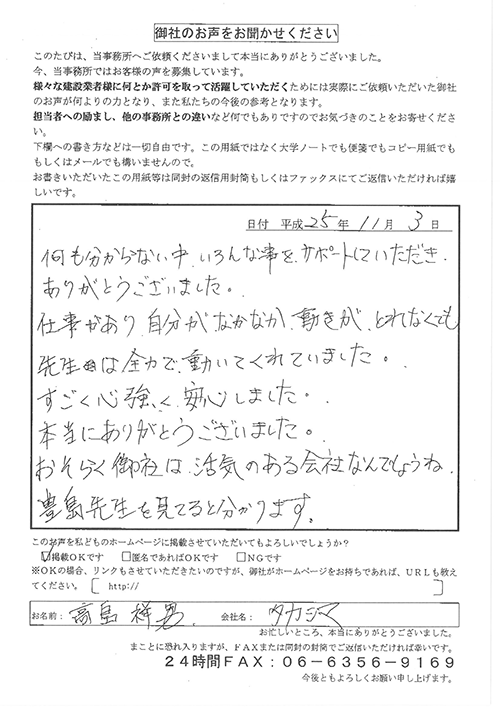 御社のお声をお聞かせください
このたびは、当事務所へご依頼くださいまして本当にありがとうございました。
今、当事務所ではお客様の声を募集しています。
様々な建設業者様に何とか許可を取って活躍していただくためには実際にご依頼いただいた御社
のお声が何よりの力となり、また私たちの今後の参考となります。
担当者への励まし、他の事務所との違いなど何でもありですのでお気づきのことをお寄せくださ
い。
下欄への書き方などは一切自由です。この用紙ではなく大学ノートでも便箋でもコピー用紙でも
もしくはメールでも構いませんので。
お書きいただいたこの用紙等は同封の返信用封筒もしくはファックスにてご返信いただければ嬉
しいです。
日付 平成25年11月3日
何も分からない中、いろんな事をサポートしていただき、
ありがとうございました。
仕事があり、自分がなかなか、動きが、とれなくても
先生は全力で、動いてくれていました。
すごく心強く、安心しました。
本当にありがとうございました。
おそらく御社は、活気のある会社なんでしょうね、
豊島先生を見てると分かります。
このお声を私どものホームページに掲載させていただいてもよろしいでしょうか?
☑掲載OKです □匿名であればOKです □NGです
※OKの場合、リンクもさせていただきたいのですが、御社がホームページをお持ちであれば、URLも教え
てください。〔 http:// 〕
お名前: 高島 祥男 会社名: タカシマ
お忙しいところ、本当にありがとうございました。
まことに恐れ入りますが、FAXまたは同封の封筒でご返信いただければ幸いです。
24時間FAX:06-6356-9169
今後ともよろしくお願い申し上げます。